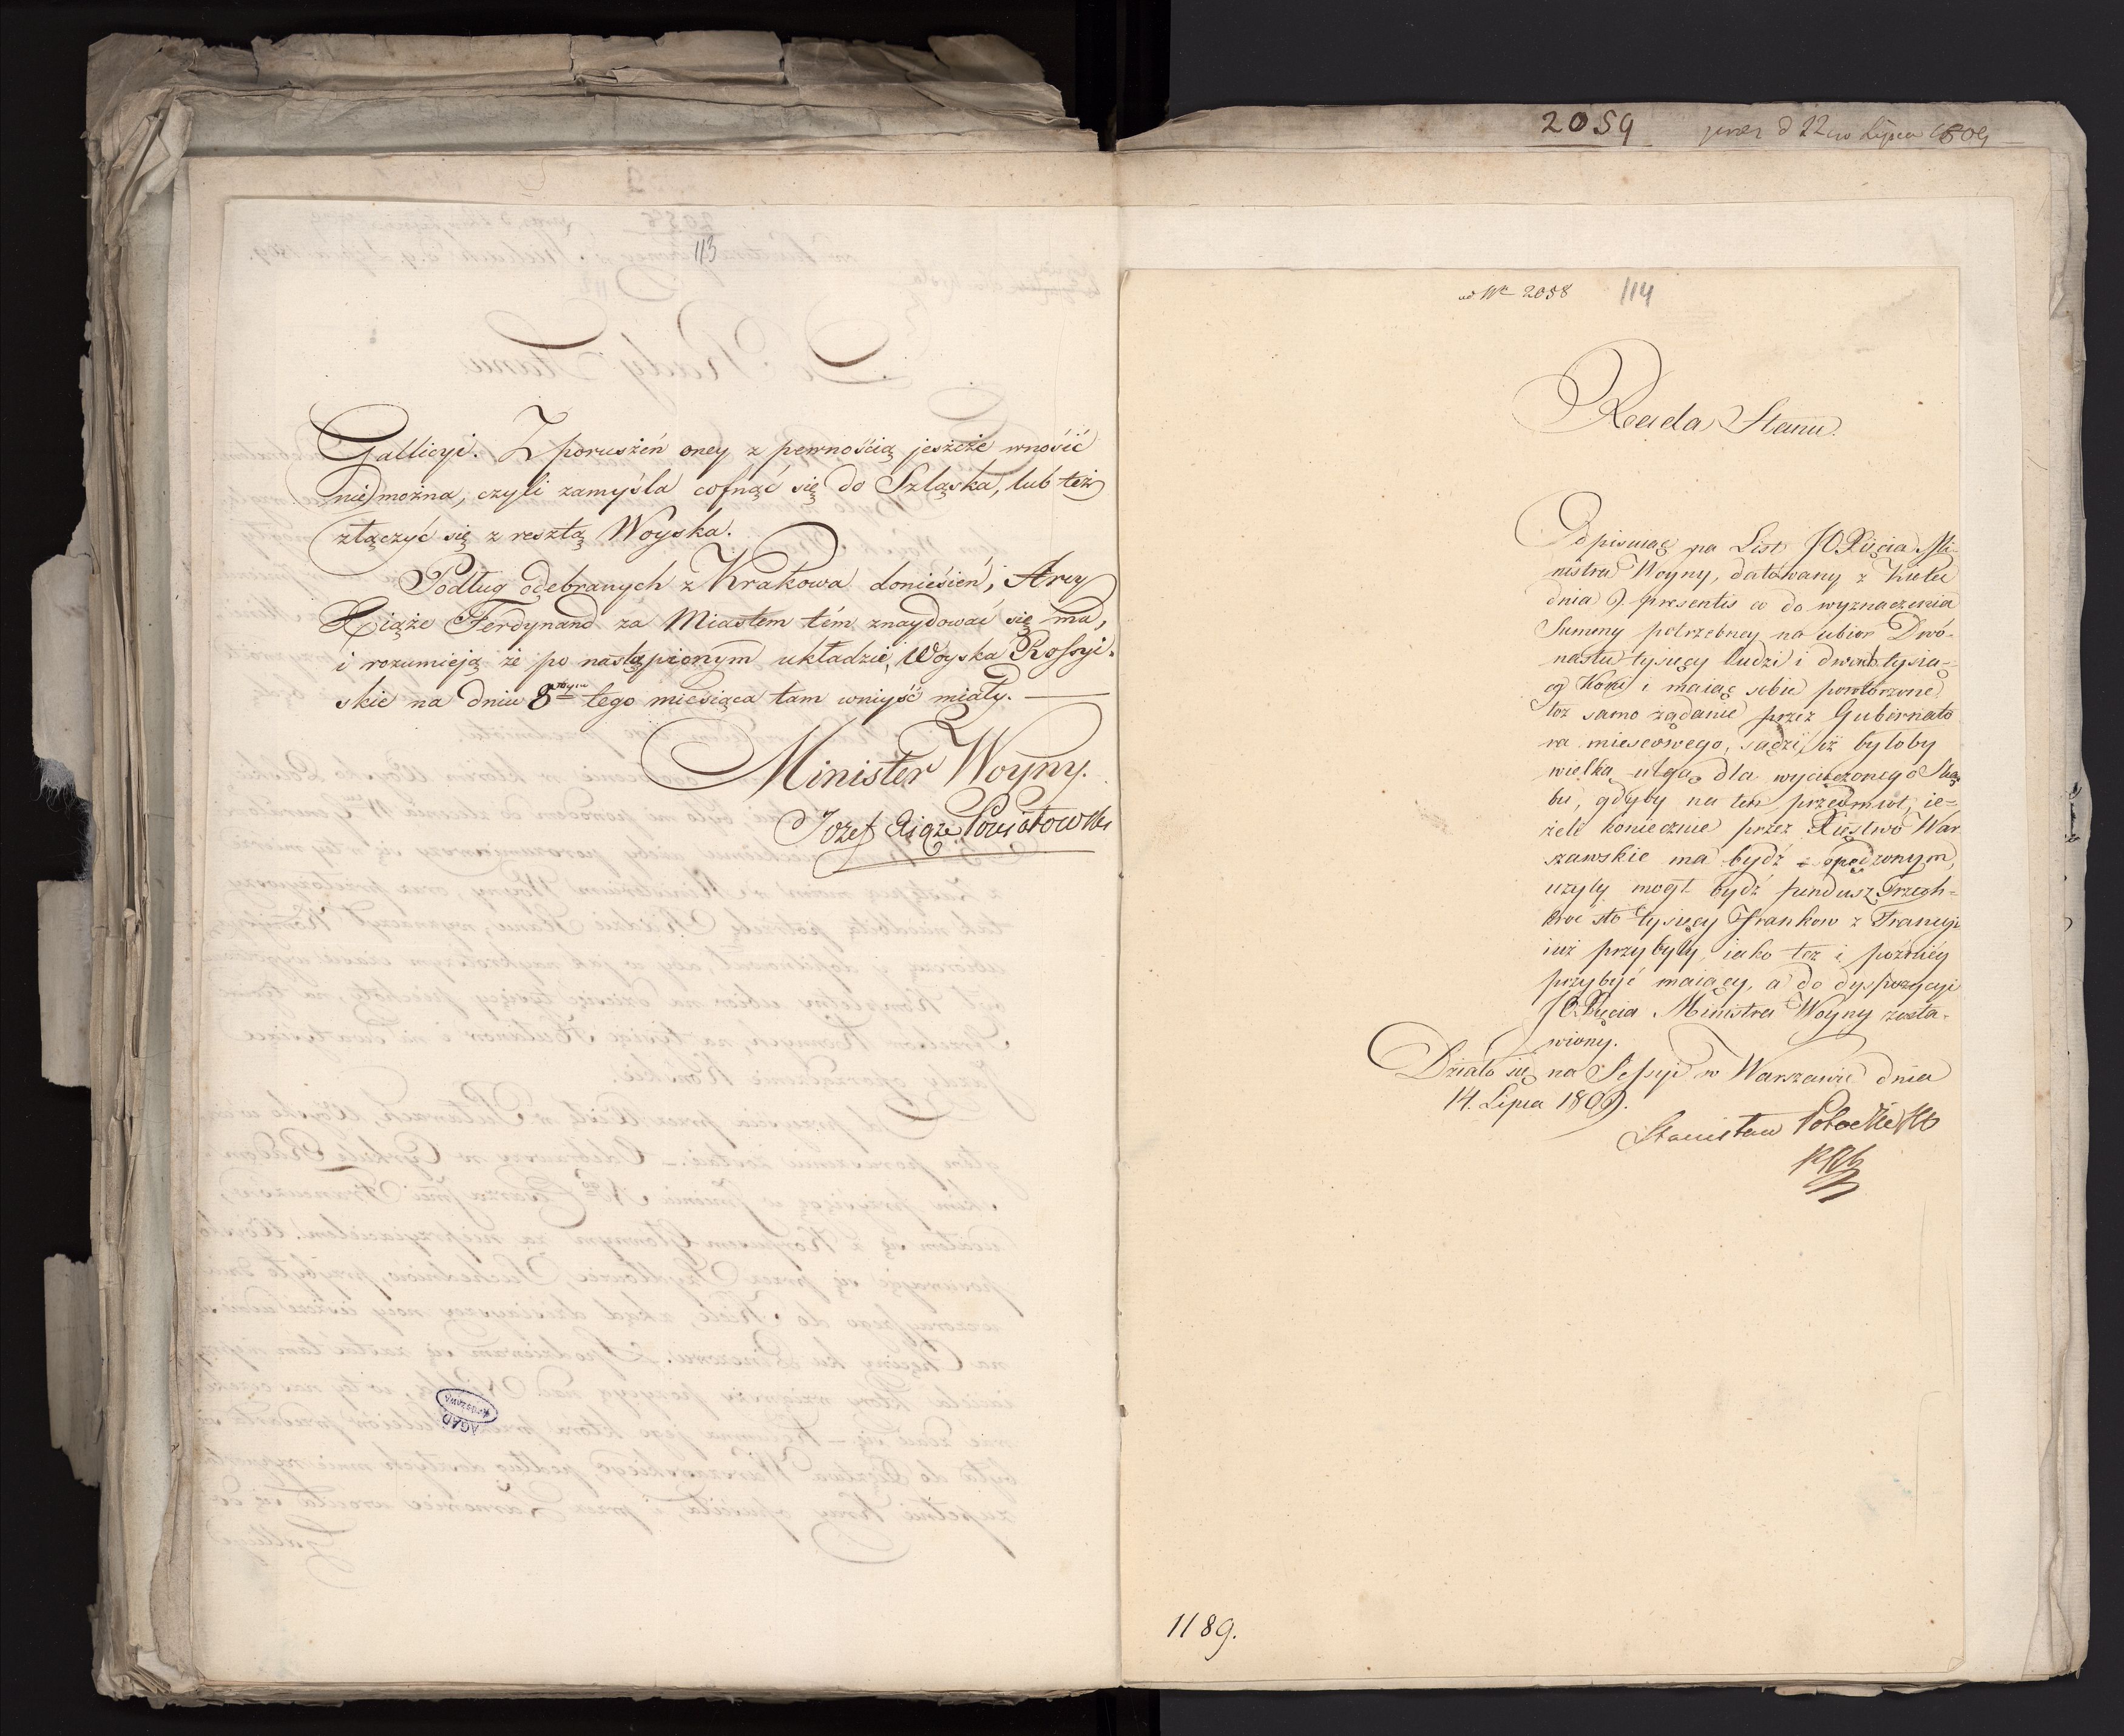 113
Gallicyi. Z poruszeń oney z pewnością jeszcze wnosić
nie można, czyli zamyśla cofnąć się do Szląska, lub też
złączyć się z resztą Woyska.
Podług odebranych z Krakowa doniesień, Arcy
Xiąże Ferdynand za Miastem tém znaydować się ma,
i rozumieją że po nastąpionym układzie, Woyska Rossyi-
skie na dniu 8 tego miesiąca tam wniyść miały. —
Minister Woyny.
Jozef Xiąze Poniatowski
AGAD
Warszawa
2059 d 22 Lipca 1809
ad Nr 2058 114
Rada Stanu.
Odpisuiąc na List JO Xięcia Mi-
nistra Woyny, datowany z Kielc
dnia 9. presentis co do wyznaczenia
Summy potrzebney na ubior Dwó-
nastu tysięcy ludzi i dwóch tysię-
cy Koni i maiąc sobie powtórzone
toż samo żądanie przez Gubernato
ra mieyscowego, sądzi iż byłoby
wielką ulgą dla wycieńczonego Skar
bu, gdyby na ten przedmiot, ie-
żeli koniecznie przez Xięstwo War
szawskie ma bydź opędzonym,
użyty mogł bydź fundusz Trzech-
kroć sto tysięcy Frankow z Francyi
iuż przybyły, iako też i pózniéy
przybyć maiący, a do dyspozycyi
JO. Xięcia Ministra Woyny zosta-
wiony.
Działo się na Sessyi w Warszawie dnia
14. Lipca 1809.
Stanisław Potocki
1189.